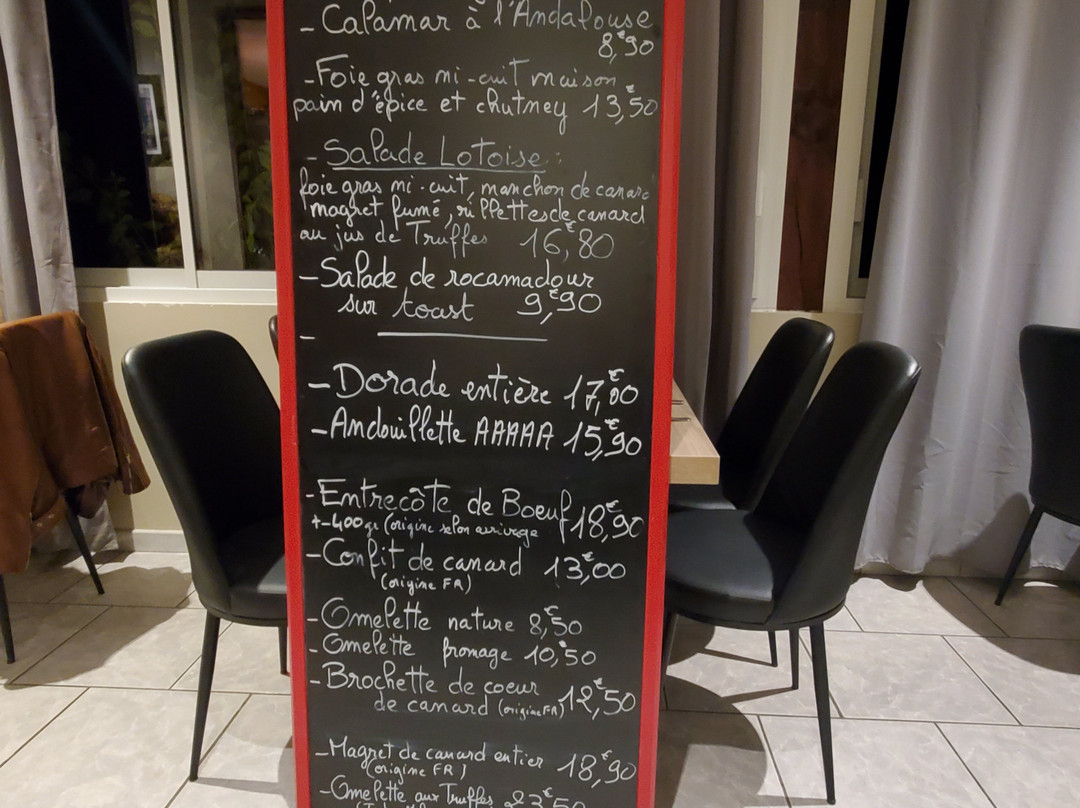 - Calamar à l'Andalouse
8,€90
- Foie gras mi-cuit maison
pain d'épice et chutney 13,€50
- Salade Lotoise :
foie gras mi-cuit, manchon de canard
magret fumé, rillettes de canard
au jus de Truffes 16,€80
- Salade de rocamadour
sur toast 9,€90
-
- Dorade entière 17,€00
- Andouillette AAAAA 15,€90
- Entrecôte de Boeuf 18,€90
+-400gr (origine selon arrivage
- Confit de canard 13,€00
(origine FR)
- Omelette nature 8,€50
- Omelette fromage 10,€50
- Brochette de coeur
de canard (origine FR) 12,€50
- Magret de canard entier 18,€90
(origine FR)
- Omelette aux Truffes 23,€50